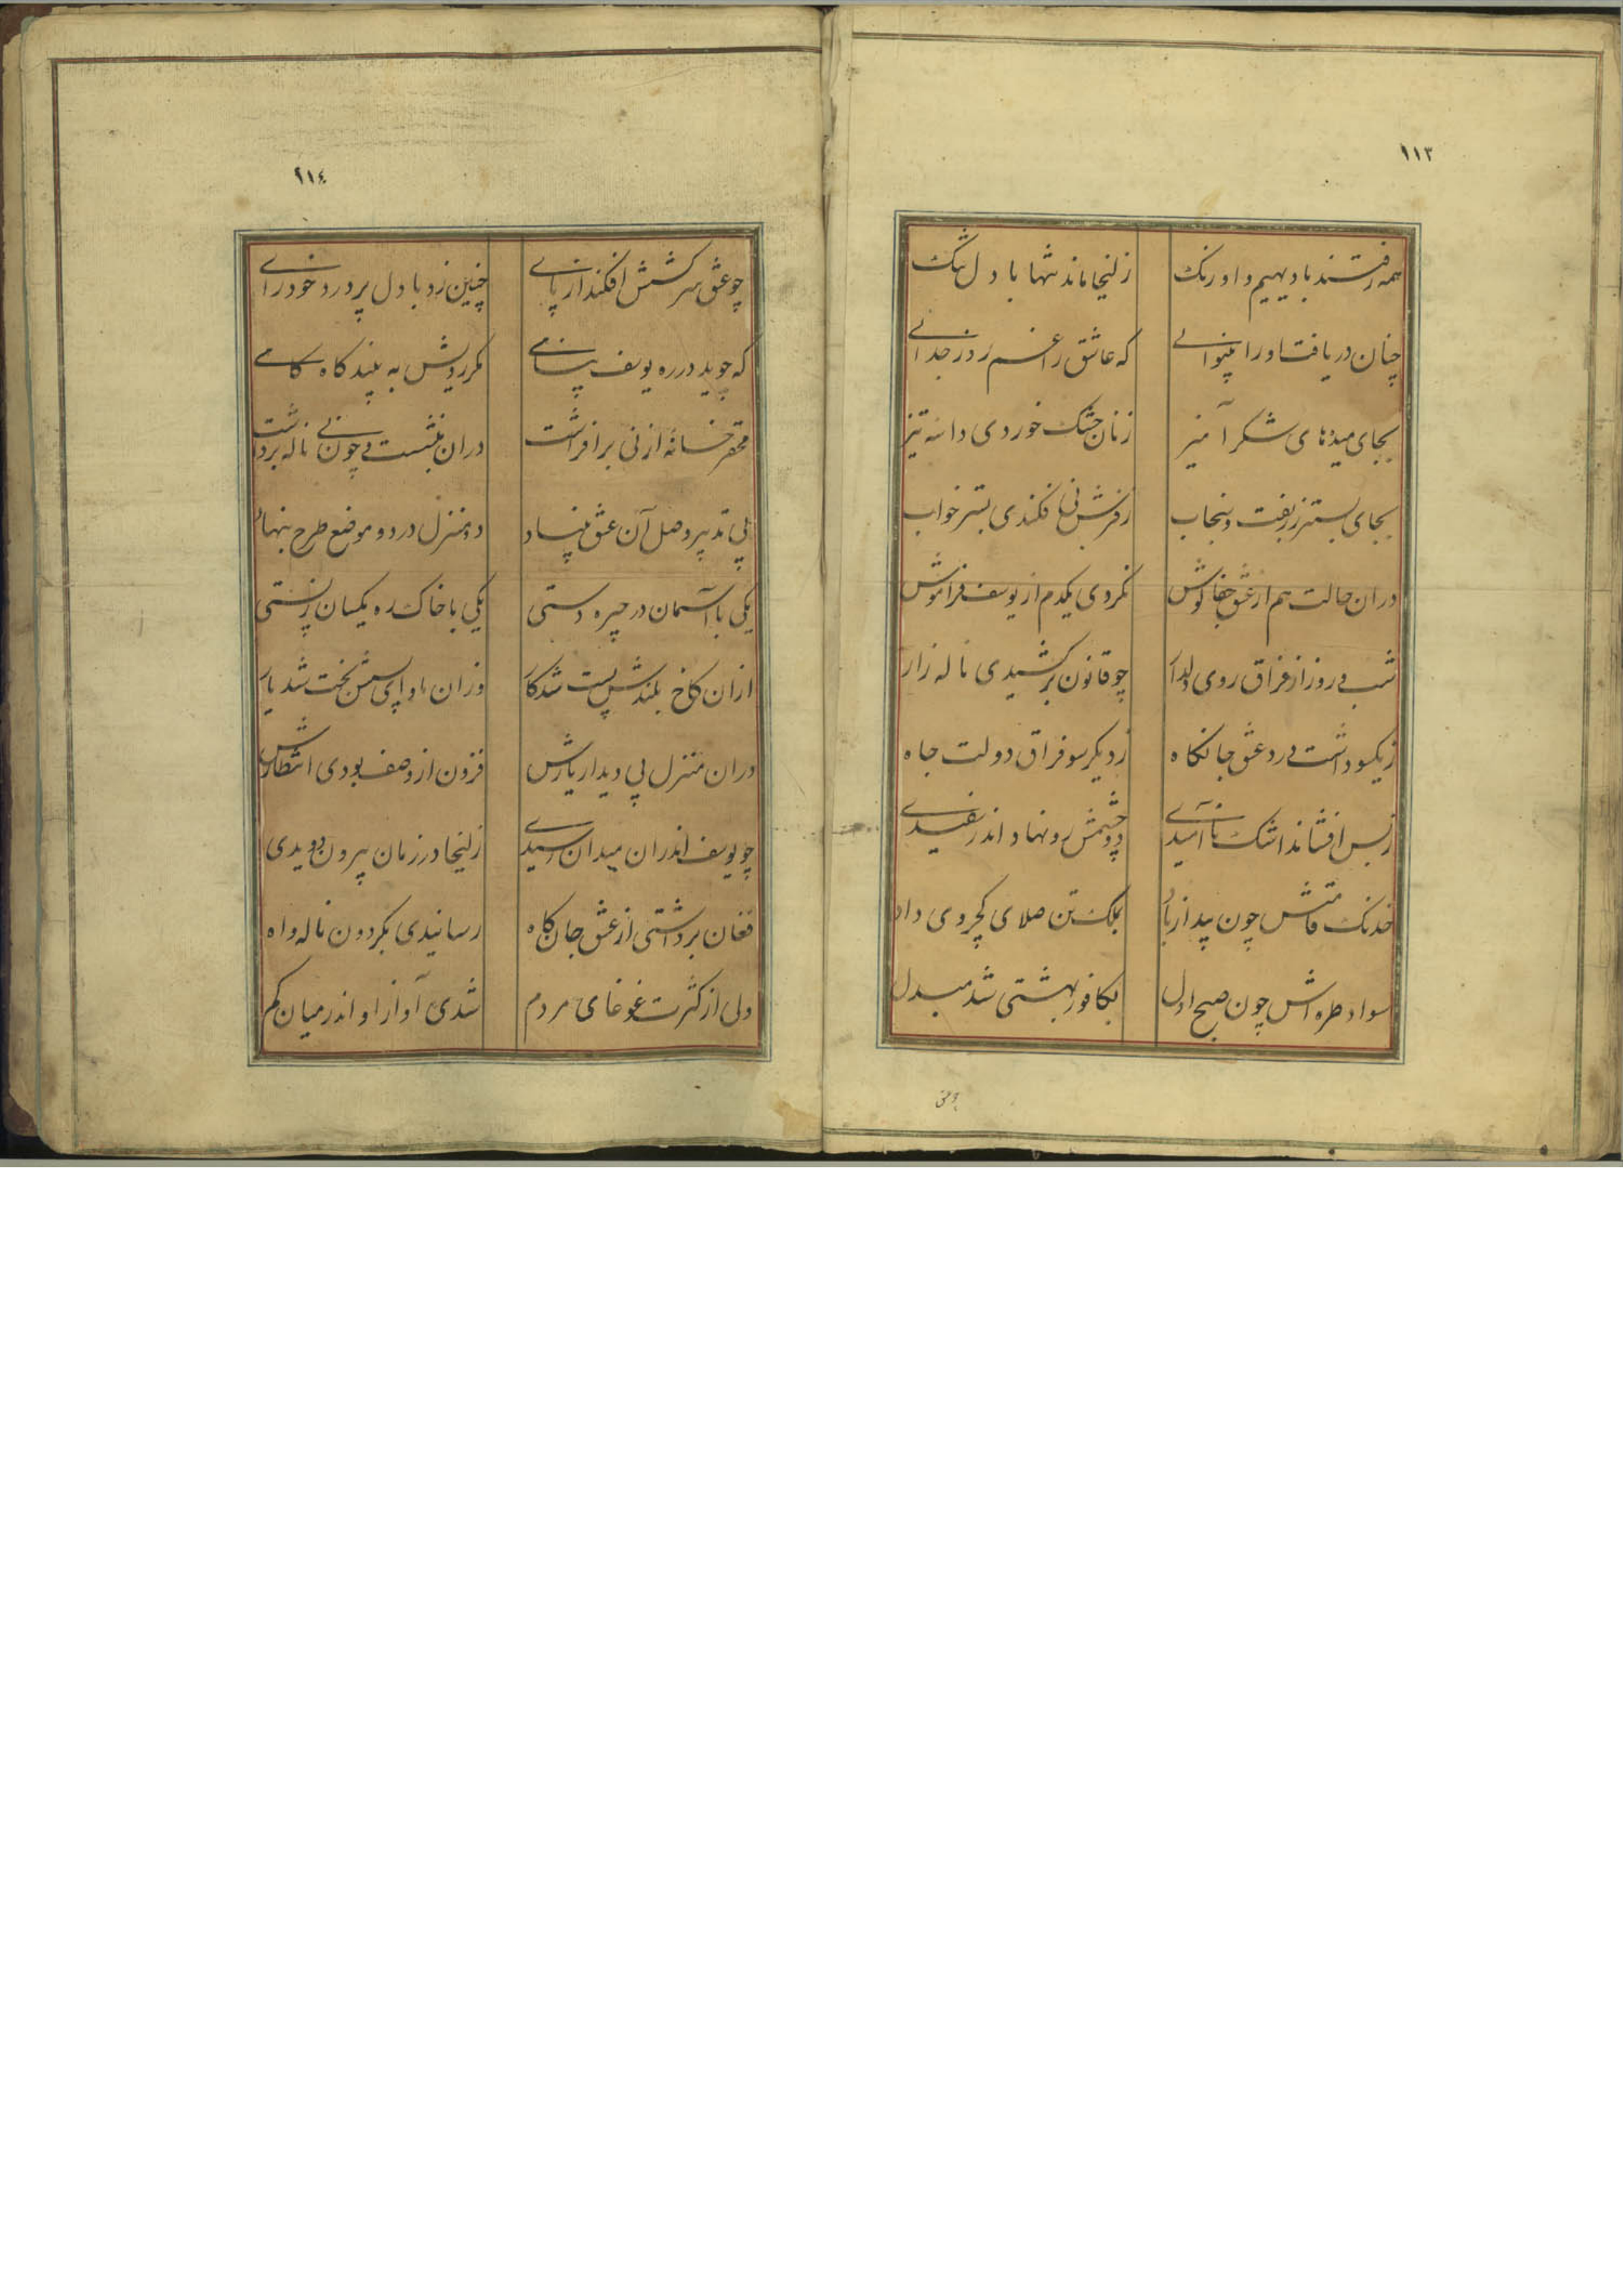 ١١٣
همه رفتند با دیهیم و اورنک زلیخا ماند تنها با دل تنک
چنان دریافت او را بینوائے که عاشق را غم روز جدائے
بجای میدهای شکر آمیز زنان خشک خوردی دانه نیز
بجای بستر زربفت و سنجاب ز فرش نی فکندی بستر خواب
دران حالت هم از عشق جفا کوش نکردی یکدم از یوسف فراموش
شب و روز از فراق روی دلدار چو قانون برکشیدی ناله زار
ز یکسو داشت درد عشق جانکاه ز دیکر سو فراق دولت جاه
ز بس افشاند اشک ناامیدے دو چشمش رو نهاد اندر سفیدے
خدنک قامتش چون بید از باد بملک تن صلای کجروی داد
سواد طره اش چون صبح اول بکافور بهشتی شد مبدل
١١٤
چو عشق سرکشش افکند از پائے چنین زد با دل پر درد خود رائے
که جوید در ره یوسف مقامے مکر رویش به بیند کاه کامے
محقر خانهٔ از نی برافراشت دران بنشست و چون نے ناله برداشت
پی تدبیر وصل آن عشق بنیاد دو منزل در دو موضع طرح بنهاد
یکی با آسمان در چیره دستی یکی با خاک ره یکسان ز پستی
ازان کاخ بلندش پست شد کار وزان ماوای پستش بخت شد یار
دران منزل پی دیدار یارش فزون از وصف بودی انتظارش
چو یوسف اندران میدان رسیدے زلیخا در زمان بیرون دویدی
فغان برداشتی از عشق جان کاه رسانیدی بکردون ناله و اه
ولی از کثرت غوغای مردم شدی آواز او اندر میان کم